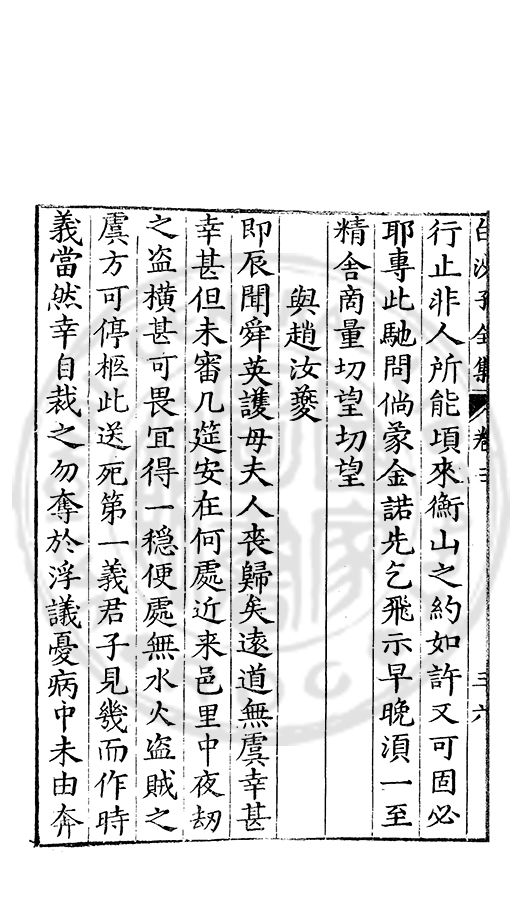 白沙子全集 卷三 三六
行止非人所能頃來衡山之約如許又可固必
耶專此馳問倘蒙金諾先乞飛示早晚湏一至
精舍商量切望切望
與趙汝夔
即辰聞舜英護母夫人喪歸矣遠道無虞幸甚
幸甚但未審几筵安在何處近来邑里中夜刼
之盗橫甚可畏冝得一穏便處無水火盗賊之
虞方可停柩此送死第一義君子見幾而作時
義當然幸自裁之勿奪於浮議憂病中未由奔